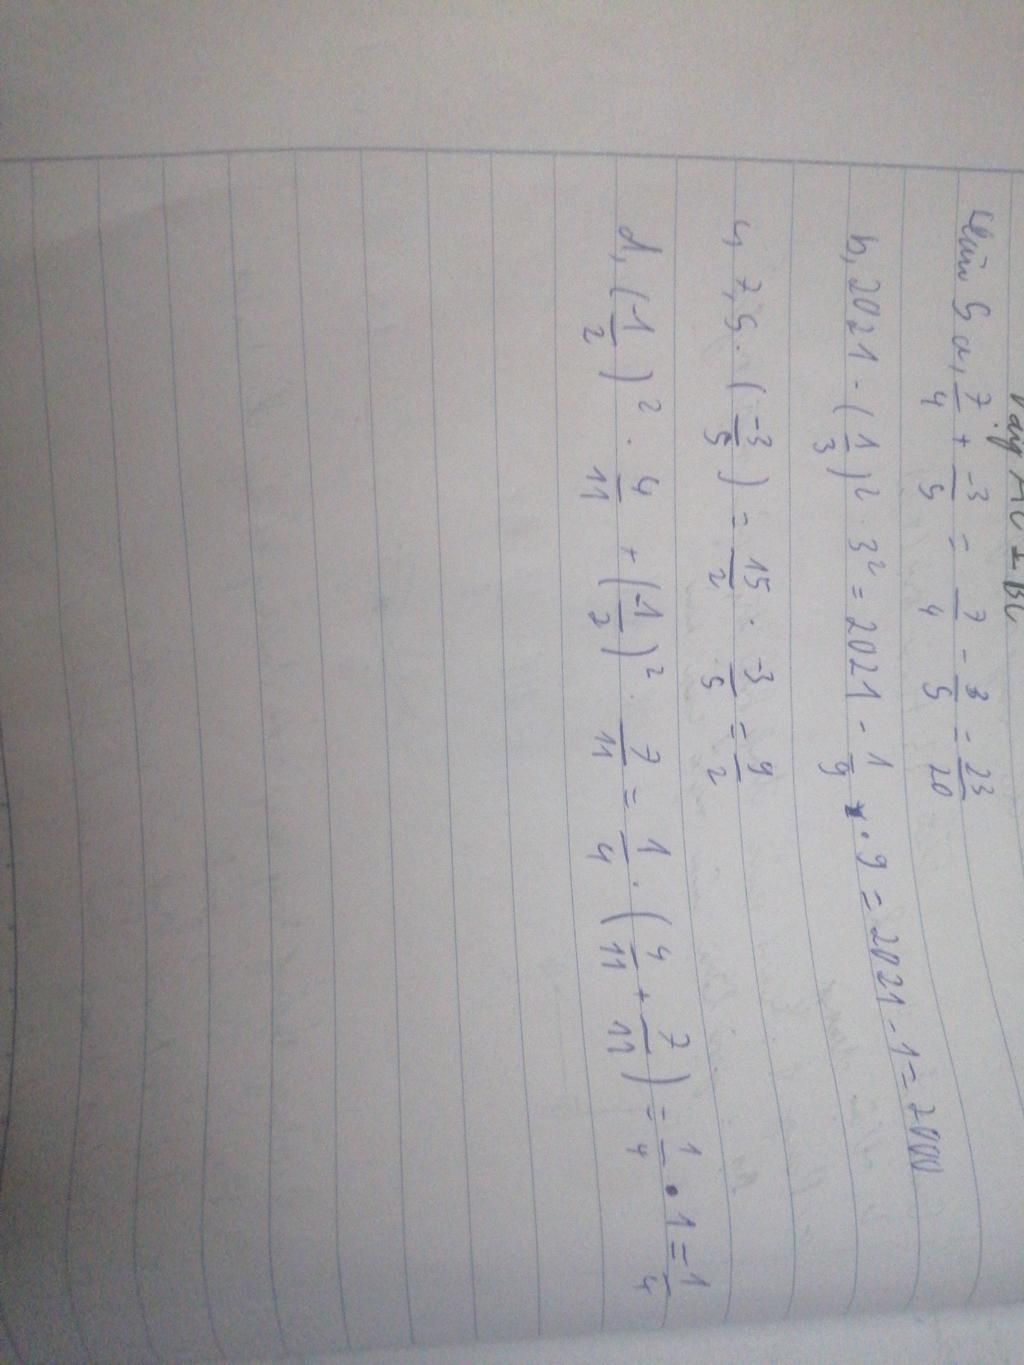 Vậy AC ⊥ BC
Câu 5 a, 7/4 + -3/5 = 7/4 - 3/5 = 23/20
b, 2021 - (1/3)² . 3² = 2021 - 1/9 . 9 = 2021 - 1 = 2000
c, 7,5 . (-3/5) = 15/2 . -3/5 = 9/2
d, (-1/2)² . 4/11 + (-1/2)² . 7/11 = 1/4 . (4/11 + 7/11) = 1/4 . 1 = 1/4